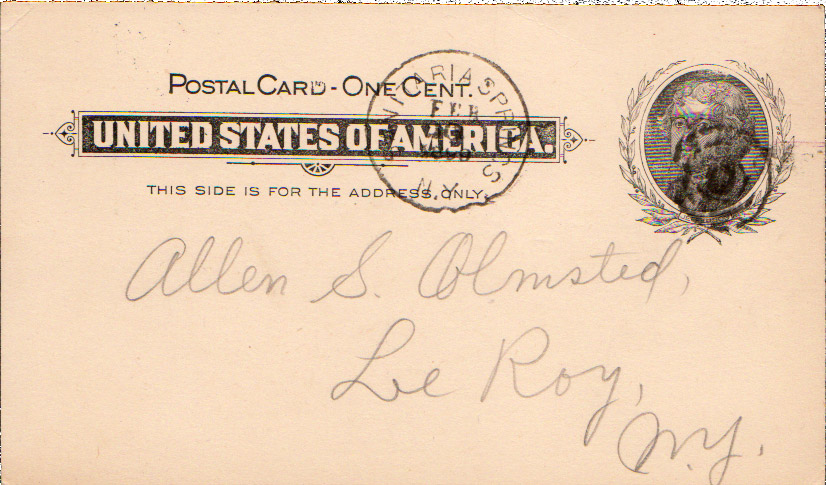 POSTAL CARD - ONE CENT.
UNITED STATES OF AMERICA.
THIS SIDE IS FOR THE ADDRESS ONLY.
SANITARIA SPRINGS
FEB
N.Y.
Allen S. Olmsted,
Le Roy,
N.Y.